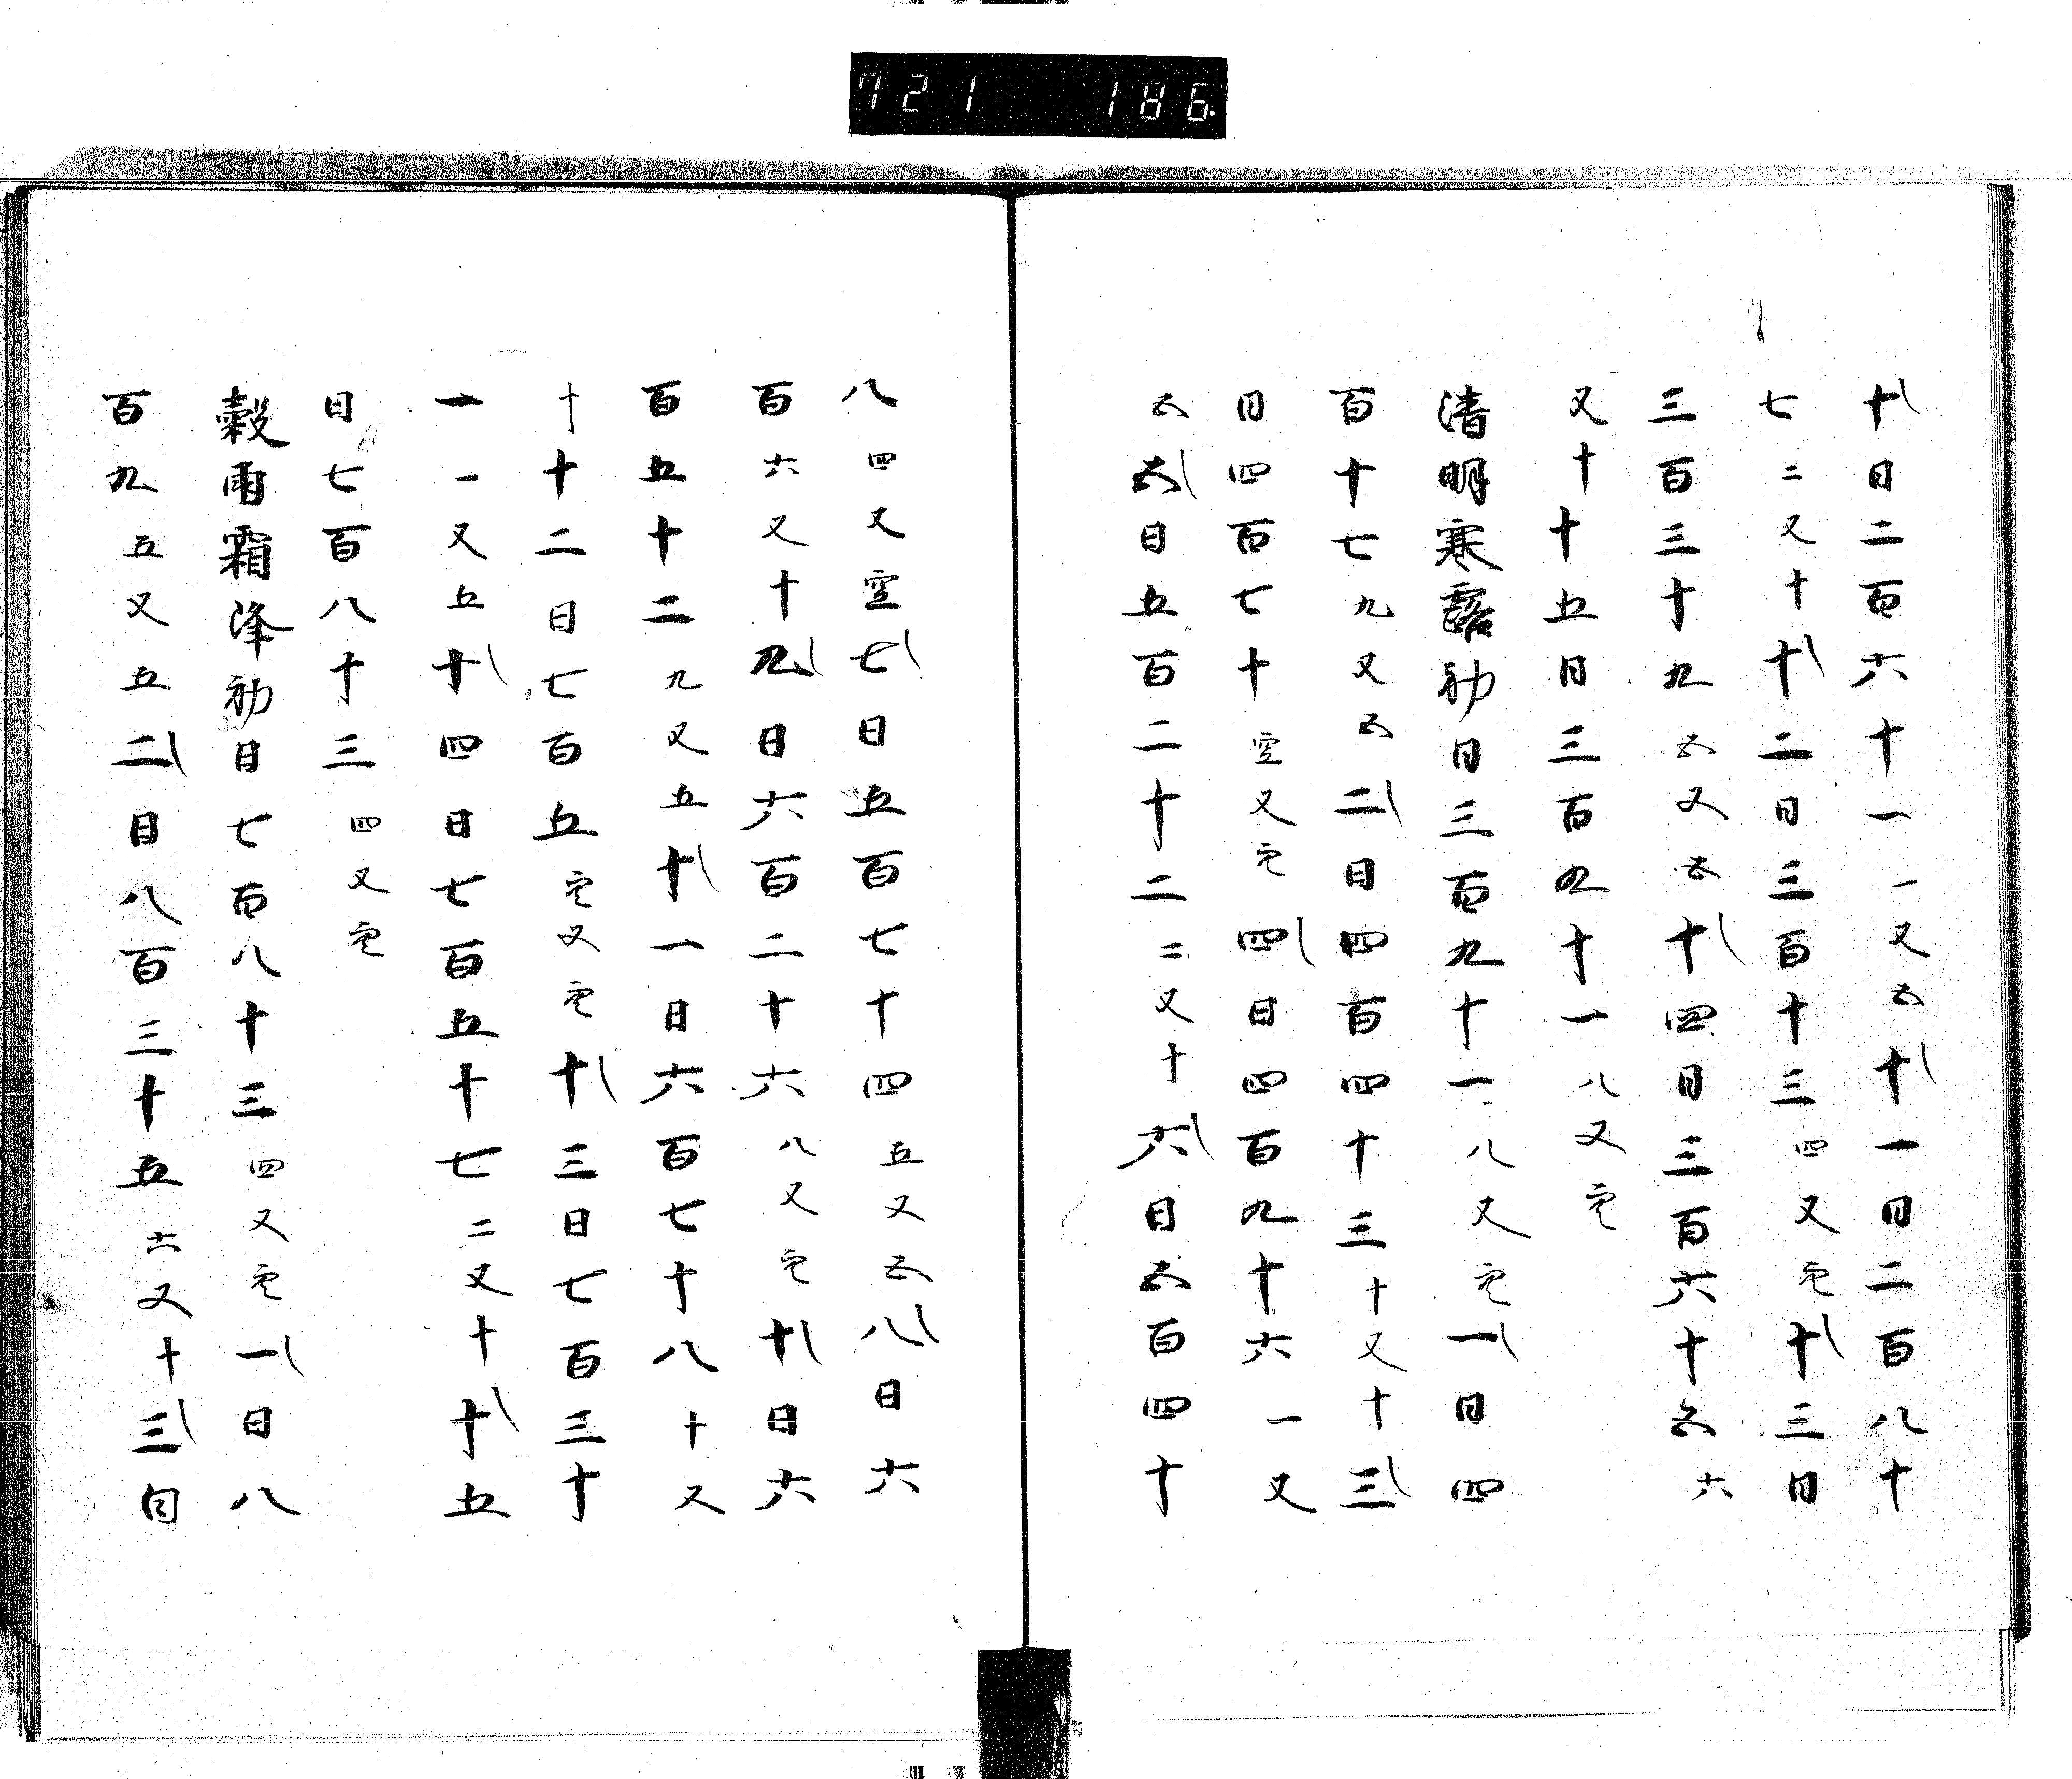 721 186
十日二百六十一一又五十一日二百八十
七二又十十二日三百十三四又空十三日
三百三十九五又五十四日三百六十五六
又十十五日三百九十一八又空
清明寒露初日三百九十一八又空一日四
百十七九又五二日四百四十三十又十三
日四百七十空又空四日四百九十六一又
五五日五百二十二二又十六日五百四十
八四又空七日五百七十四五又五八日六
百六又十九日六百二十六八又空十日六
百五十二九又五十一日六百七十八十又
十十二日七百五空又空十三日七百三十
一一又五十四日七百五十七二又十十五
日七百八十三四又空
穀雨霜降初日七百八十三四又空一日八
百九五又五二日八百三十五六又十三日